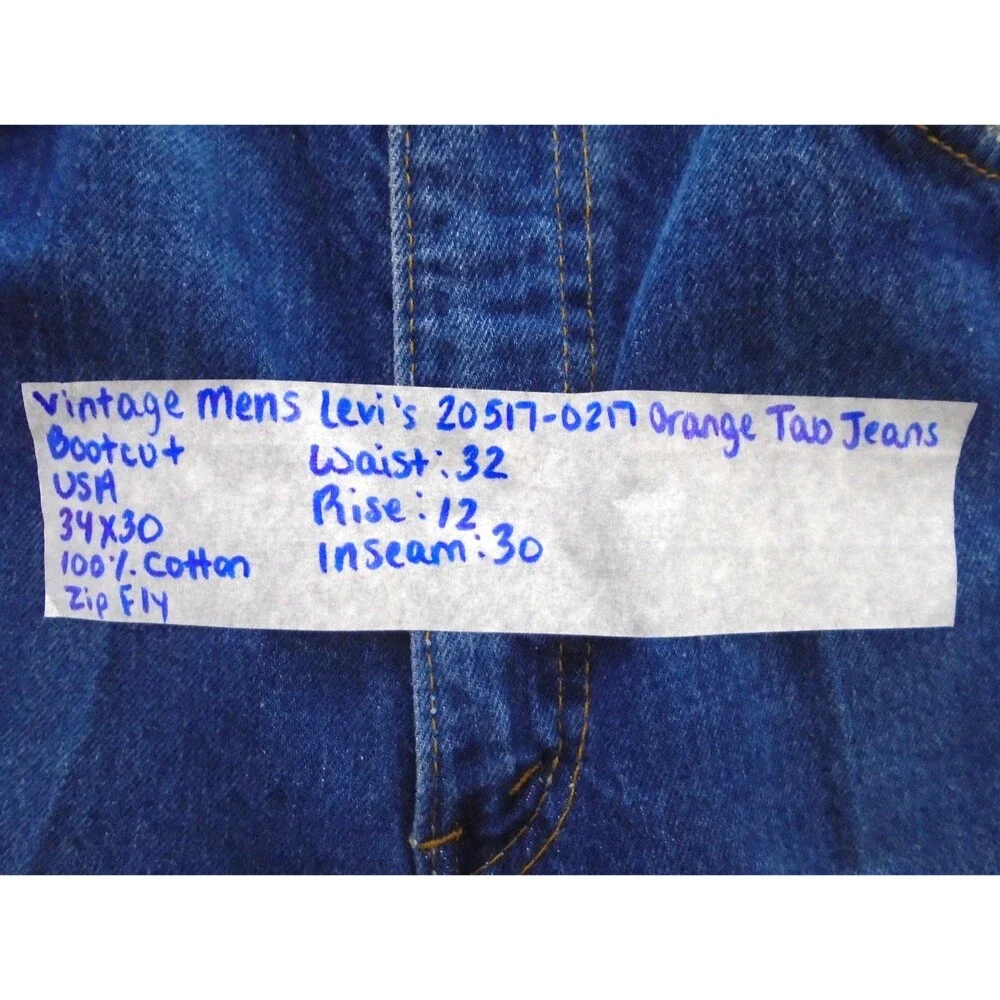 Vintage Mens Levi's 20517-0217 Orange Tab Jeans
Bootcut
USA
34X30
100% Cotton
Zip Fly
Waist: 32
Rise: 12
Inseam: 30